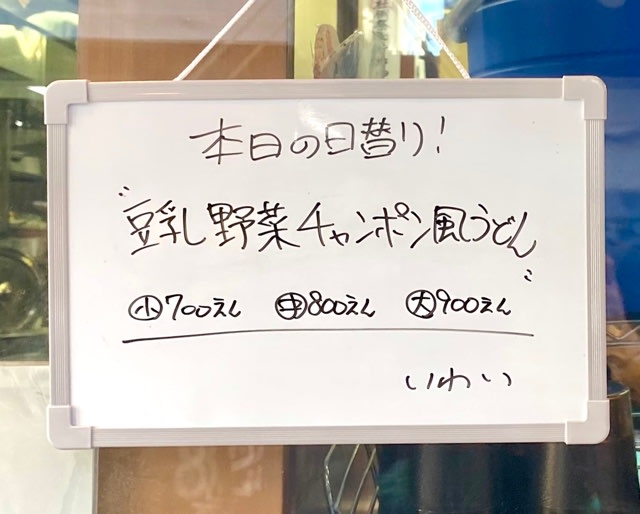 本日の日替り!
"豆乳野菜チャンポン風うどん"
㊥小700えん ㊥800えん 大900えん
いわい